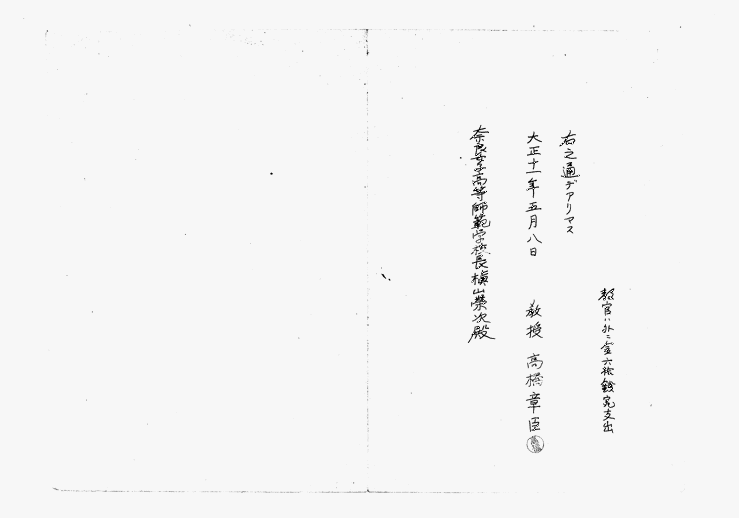 教官ハ外ニ金六拾銭宛支出
右之通デアリマス
大正十一年五月八日　教授　高橋章臣
奈良女子高等師範学校長槇山榮次殿